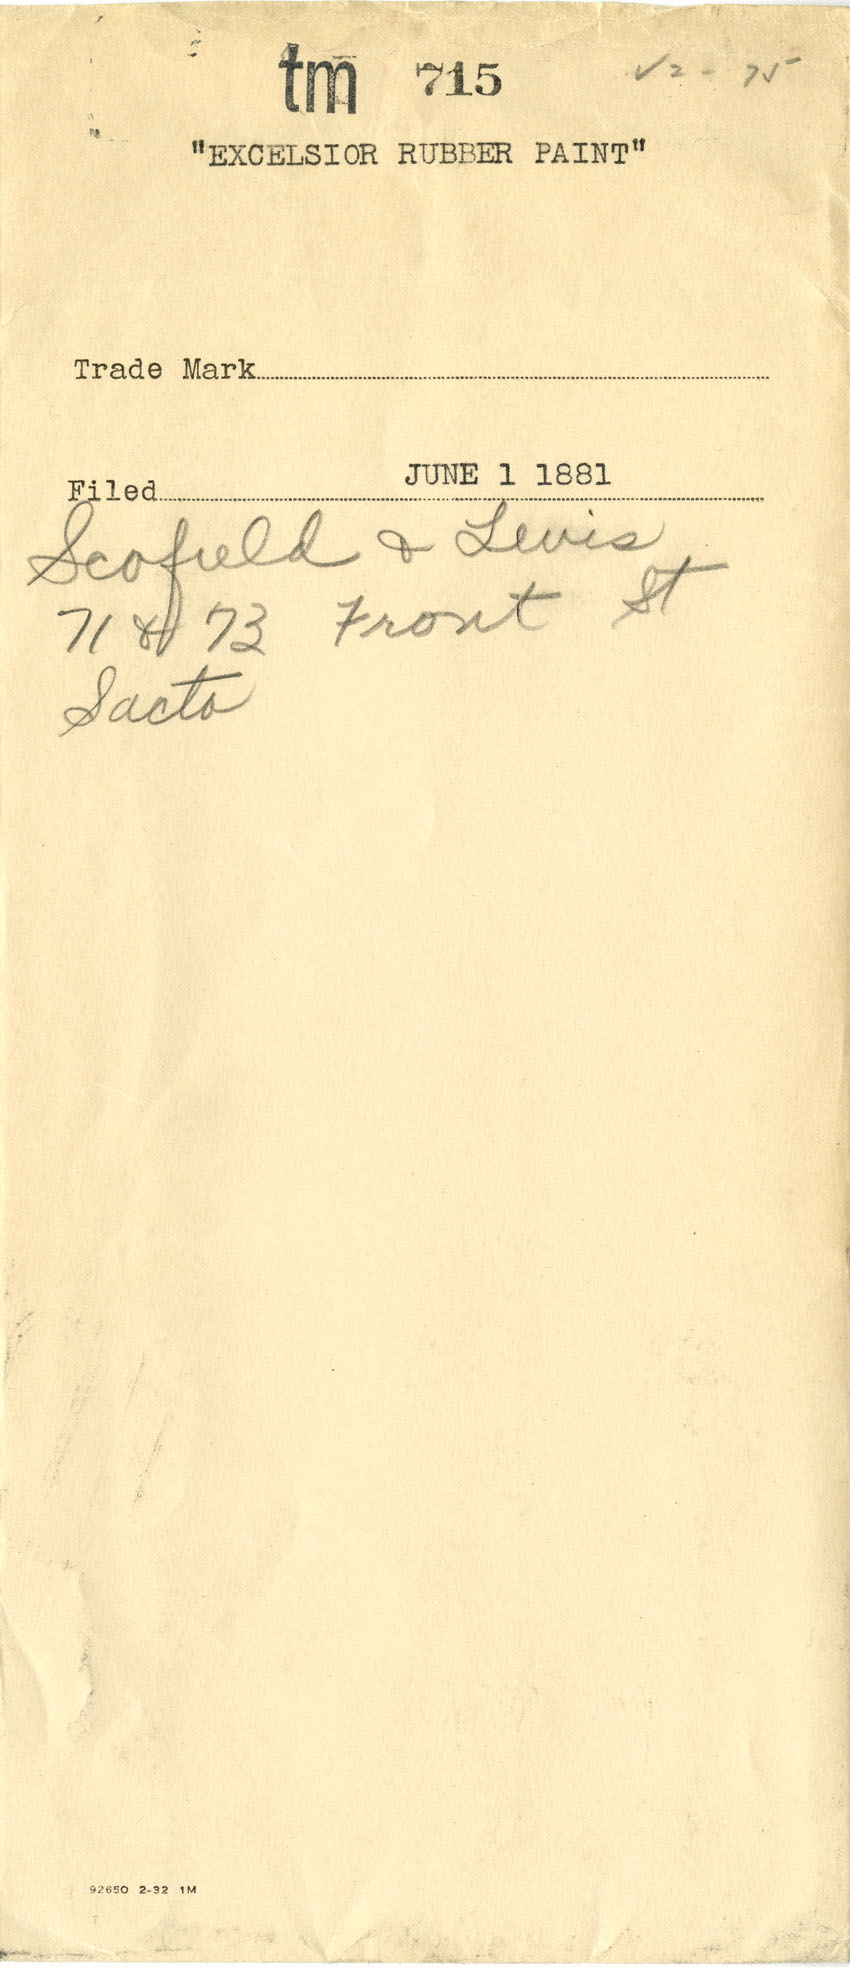 tm 715 √2 - 75
"EXCELSIOR RUBBER PAINT"
Trade Mark
Filed JUNE 1 1881
Scofield & Lewis
71 & 73 Front St
Sacto
92650 2-32 1M